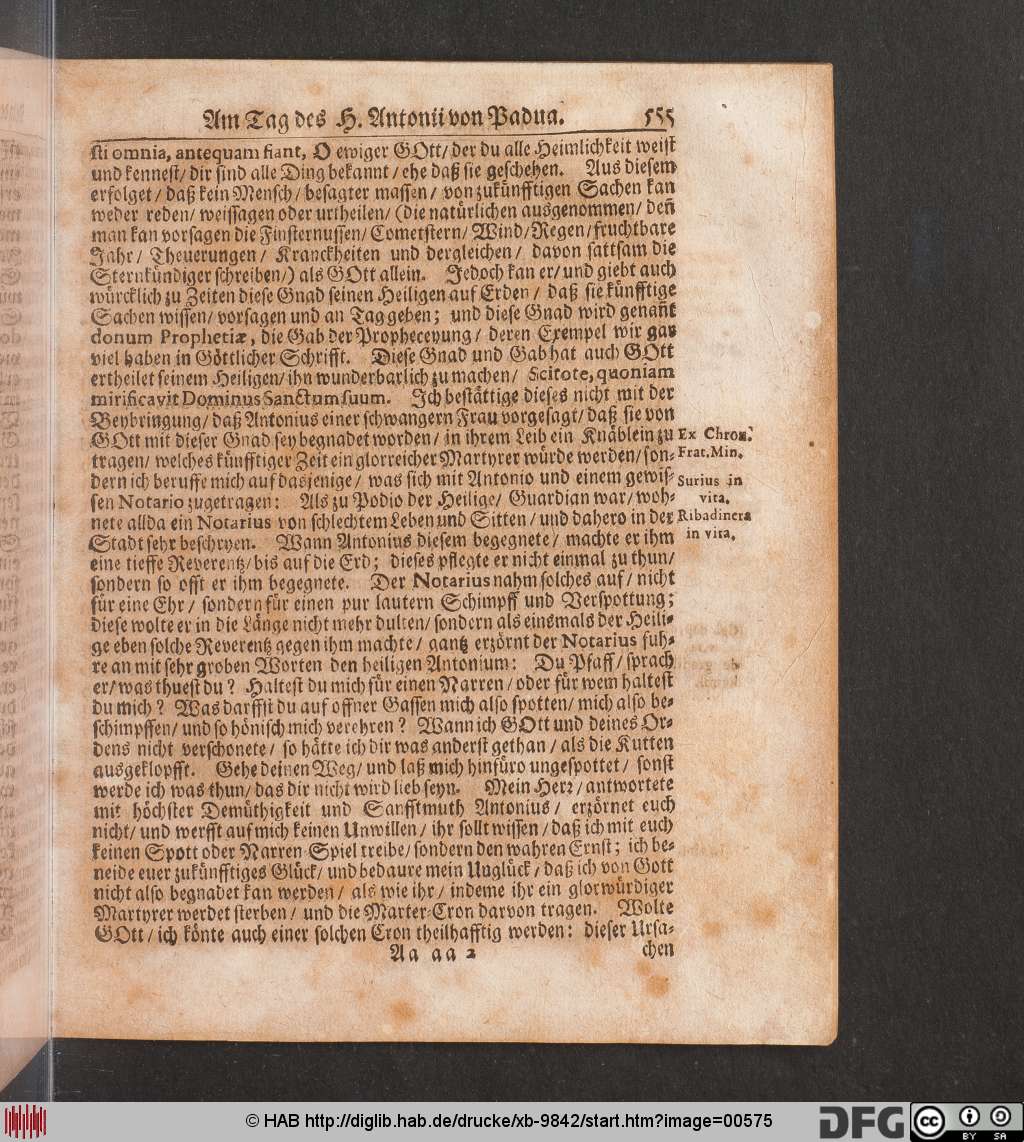 Am Tag des H. Antonii von Padua. 555
sti omnia, antequam fiant, O ewiger GOtt/ der du alle Heimlichkeit weist
und kennest/ dir sind alle Ding bekannt/ ehe daß sie geschehen. Aus diesem
erfolget/ daß kein Mensch/ besagter massen/ von zukünfftigen Sachen kan
weder reden/ weissagen oder urtheilen/ (die natürlichen ausgenommen/ deñ
man kan vorsagen die Finsternussen/ Cometstern/ Wind/ Regen/ fruchtbare
Jahr/ Theuerungen/ Kranckheiten und dergleichen/ davon sattsam die
Sternkündiger schreiben/) als GOtt allein. Jedoch kan er/ und giebt auch
würcklich zu Zeiten diese Gnad seinen Heiligen auf Erden/ daß sie künfftige
Sachen wissen/ vorsagen und an Tag geben; und diese Gnad wird genañt
donum Prophetiæ, die Gab der Propheceyung/ deren Exempel wir gar
viel haben in Göttlicher Schrifft. Diese Gnad und Gab hat auch GOtt
ertheilet seinem Heiligen/ ihn wunderbarlich zu machen/ Scitote, quoniam
mirificavit Dominus Sanctum suum. Ich bestättige dieses nicht mit der
Beybringung/ daß Antonius einer schwangern Frau vorgesagt/ daß sie von
GOtt mit dieser Gnad sey begnadet worden/ in ihrem Leib ein Knäblein zu
tragen/ welches künfftiger Zeit ein glorreicher Martyrer würde werden/ son-
dern ich beruffe mich auf dasjenige/ was sich mit Antonio und einem gewis-
sen Notario zugetragen: Als zu Podio der Heilige/ Guardian war/ woh-
nete allda ein Notarius von schlechtem Leben und Sitten/ und dahero in der
Stadt sehr beschryen. Wann Antonius diesem begegnete/ machte er ihm
eine tieffe Reverentz/ bis auf die Erd; dieses pflegte er nicht einmal zu thun/
sondern so offt er ihm begegnete. Der Notarius nahm solches auf/ nicht
für eine Ehr/ sondern für einen pur lautern Schimpff und Verspottung;
diese wolte er in die Länge nicht mehr dulten/ sondern als einsmals der Heili-
ge eben solche Reverentz gegen ihm machte/ gantz erzörnt der Notarius fuh-
re an mit sehr groben Worten den heiligen Antonium: Du Pfaff/ sprach
er/ was thuest du? Haltest du mich für einen Narren/ oder für wem haltest
du mich? Was darffst du auf offner Gassen mich also spotten/ mich also be-
schimpffen/ und so hönisch mich verehren? Wann ich GOtt und deines Or-
dens nicht verschonete/ so hätte ich dir was anderst gethan/ als die Kutten
ausgeklopfft. Gehe deinen Weg/ und laß mich hinfüro ungespottet/ sonst
werde ich was thun/ das dir nicht wird lieb seyn. Mein Herr/ antwortete
mit höchster Demüthigkeit und Sanfftmuth Antonius/ erzörnet euch
nicht/ und werfft auf mich keinen Unwillen/ ihr sollt wissen/ daß ich mit euch
keinen Spott oder Narren-Spiel treibe/ sondern den wahren Ernst; ich be-
neide euer zukünfftiges Glück/ und bedaure mein Unglück/ daß ich von Gott
nicht also begnadet kan werden/ als wie ihr/ indeme ihr ein glorwürdiger
Martyrer werdet sterben/ und die Marter-Cron darvon tragen. Wolte
GOtt/ ich könte auch einer solchen Cron theilhafftig werden: dieser Ursa-
Aa aa 2 chen
Ex Chron.
Frat. Min.
Surius in
vita.
Ribadinera
in vita.
© HAB http://diglib.hab.de/drucke/xb-9842/start.htm?image=00575
DFG
cc
BY SA